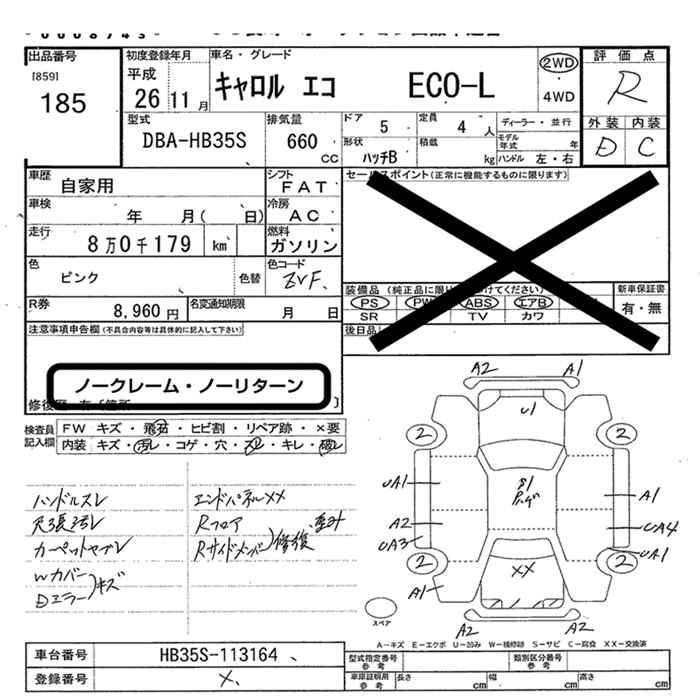 出品番号
[859]
185
初度登録年月
平成
26 11 月
車名・グレード
キャロル エコ ECO-L
2WD
4WD
評価点
R
型式
DBA-HB35S
排気量
660 cc
ドア
5
定員
4 人
ディーラー・並行
モデル年式 年
形状
ハッチB
積載
kg
ハンドル 左・右
外装 内装
D C
車歴
自家用
シフト
FAT
セールスポイント(正常に機能するものに限ります)
車検
年 月( 日)
冷房
AC
走行
8万0千179 km
燃料
ガソリン
色
ピンク
色替
色コード
ZVF
装備品 (純正品に限り
けてください)
新車保証書
PS PW ABS エアB
有・無
SR TV カワ
R券
8,960 円
名変通知期限
月 日
後日品
注意事項申告欄(不具合内容等は具体的に記入して下さい)
ノークレーム・ノーリターン
検査員記入欄
FW キズ・飛石・ヒビ割・リペア跡・×要
内装 キズ・汚レ・コゲ・穴・スレ・キレ・破レ
ハンドルスレ
天張汚レ
カーペットヤブレ
Wカバー
Dエラー)キズ
エンドパネルXX
Rフロア
Rサイドメンバー)修復
A2 A1
U1
2 2
UA1
A2
UA3
A1
UA4
UA1
2 2
A1
XX
A2 A2
スペア
A-キズ E-エクボ U-凹み W-補修跡 S-サビ C-腐食 XX-交換済
車台番号
HB35S-113164
登録番号
型式指定番号 参考
類別区分番号 参考
車庫証明用 参考
長さ cm
幅 cm
高さ cm